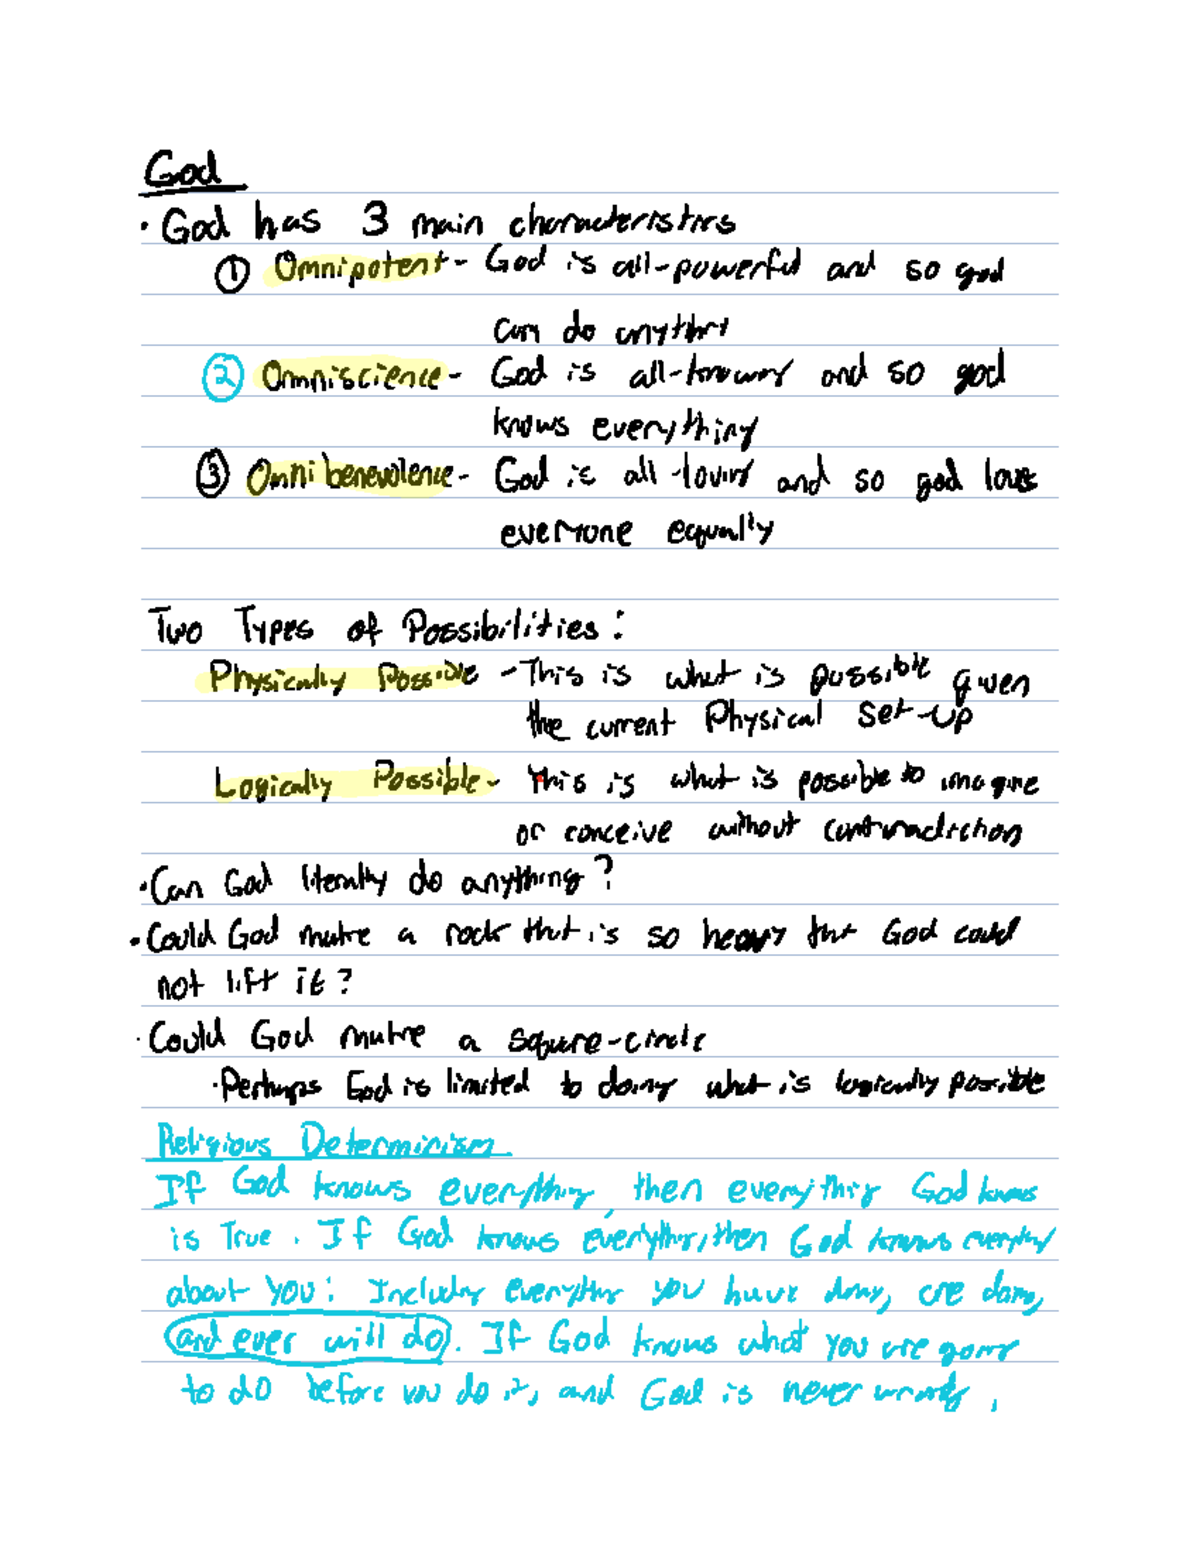 God
· God has 3 main characteristics
① Omnipotent - God is all-powerful and so god
can do anything
② Omniscience - God is all-knowing and so god
knows everything
③ Omnibenevolence - God is all-loving and so god loves
everyone equally
Two Types of Possibilities:
Physically Possible - This is what is possible given
the current Physical Set-up
Logically Possible - This is what is possible to imagine
or conceive without contradiction
· Can God literally do anything?
· Could God make a rock that is so heavy that God could
not lift it?
· Could God make a square-circle
· Perhaps God is limited to doing what is logically possible
Religious Determinism
If God knows everything, then everything God knows
is True. If God knows everything, then God knows everything
about you: Including everything you have done, are doing,
and ever will do. If God knows what you are going
to do before you do it, and God is never wrong,